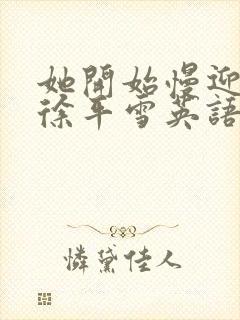 她開始慢迎
徐平雪英語
憐黛佳人